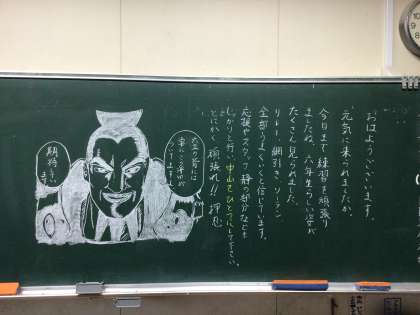 おはようございます。
元気に来られましたか。
今日まで練習を頑張り
ましたね。六年生らしい姿が
たくさん見られました。
リレー、綱引き、ソーラン
全部うまくいくと信じています。
応援やスタッフ、静の部分なども
しっかりと行い、中山をひとつにして下さい。
とにかく頑張れ!! 押忍
期待してい
ます。